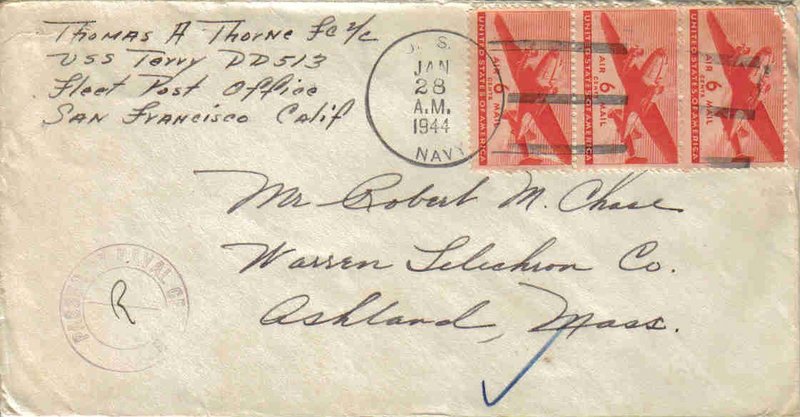 Thomas A Thorne FC 2/c
USS Terry DD513
Fleet Post Office
San Francisco Calif
U. S.
JAN
28
A.M.
1944
NAVY
UNITED STATES OF AMERICA
AIR 6 CENTS MAIL
UNITED STATES OF AMERICA
AIR 6 CENTS MAIL
UNITED STATES OF AMERICA
AIR 6 CENTS MAIL
Mr Robert M. Chase
Warren Telechron Co.
Ashland, Mass.
PASSED BY NAVAL CE
R